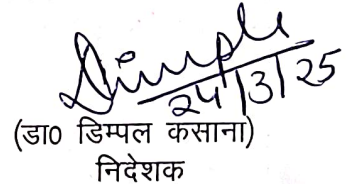 Dimple
24/3/25
(डा0 डिम्पल कसाना)
निदेशक